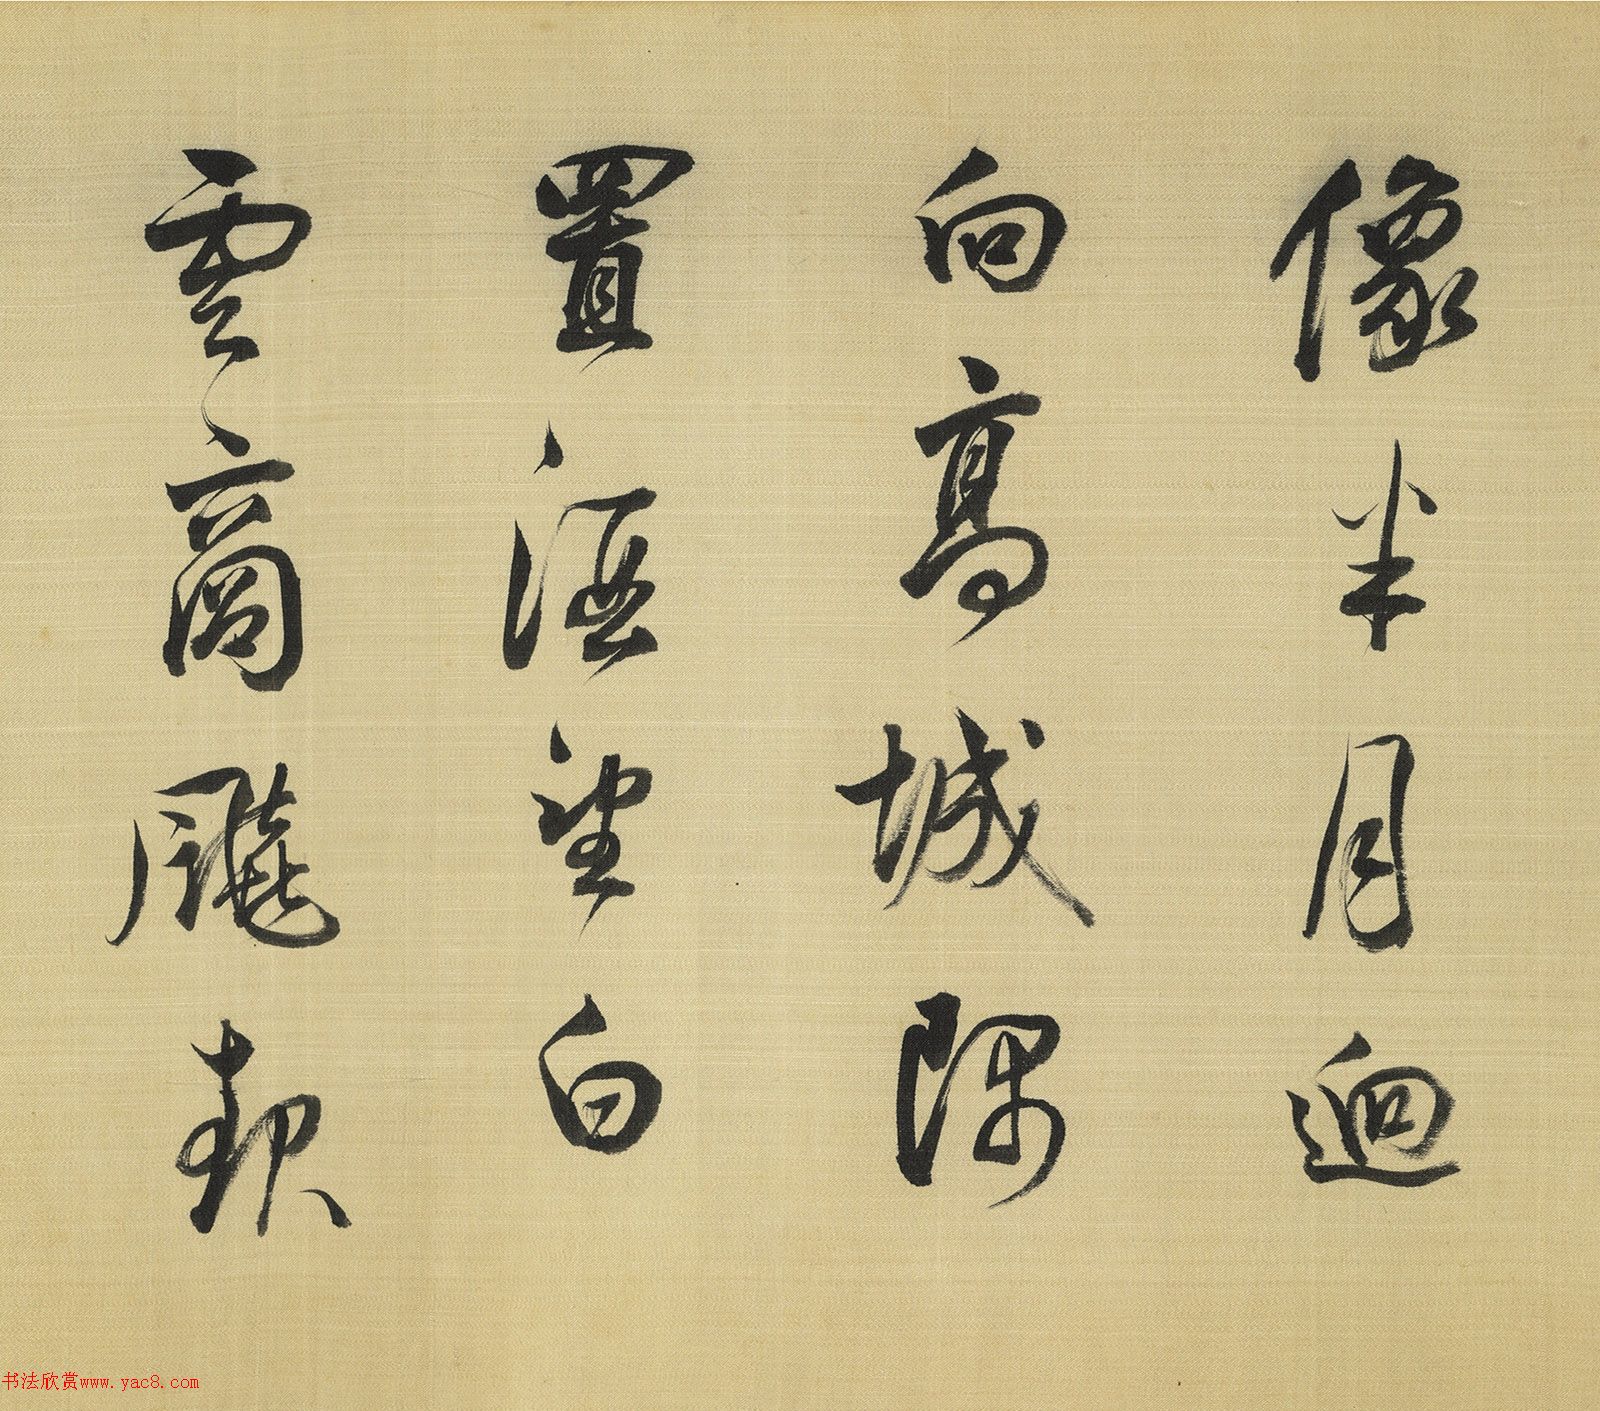 像半月迥
向高城隅
置酒望白
雲商飈起
书法欣赏www.yac8.com